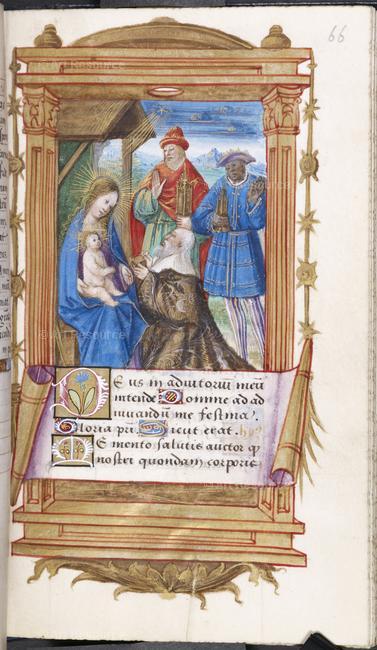 66
Deus in adiutoriũ meũ
intende Domine ad ad
iuuandũ me festina.
Gloria pri. Sicut erat. hỹ9
Memento salutis auctor ꝙ
nostri quondam corporis
© Art Resource